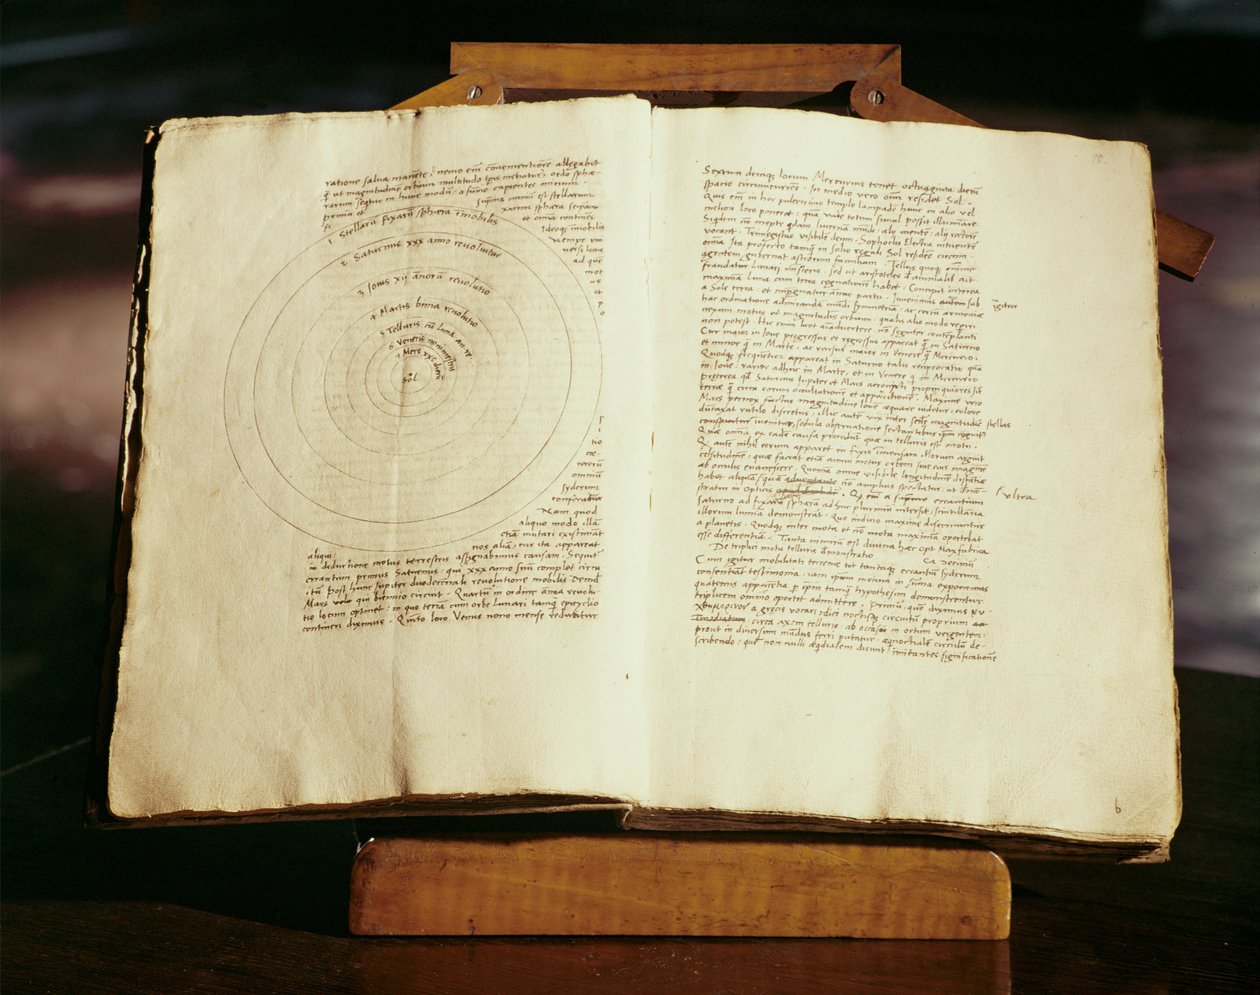 ratione salva manēte: nemo em̄ convenientiorē allegabit
q̄ ut magnitudinē orbium multitudo tp̄is metiatur: ordo sphæ-
rarum sequitur in hunc modū: a sūmo capientes initium.
prima et suprema omniū est stellarum
fixarum sphæra seipam
et omnia continēs
Ideoq; īmobilis
nempe un
versi locus
ad quē
mot
us
et
p
o
1 Stellarū fixarū sphæra imobilis
2 Saturnus xxx anno revolvitur
3 Iovis xij annorū revolutio
4 Martis bima revolutio
5 Telluris cū Luna an. re.
6 Veneris nonimestris
7 Merc
Sol
tio
cæ
terorū
omniū
syderum
conferatur
Nam quod
aliquo modo illā
etiā mutari existimāt
aliqui nos aliā, cur ita appareat
in deductione motus terrestris assignabimus causam. Sequitʳ
errantium primus Saturnus: qui xxx anno suū complet circu
itū. Post hunc Jupiter duodecennali revolutione mobilis Demū
Mars volo qui biennio circuit. Quartū in ordine anua revolu-
tio locum optinet: in quo terra cum orbe Lunari tanq̄ epicyclio
contineri diximus. Quinto loco Venus nono mense reducitur
Sextum deniq; locum Mercurius tenet octuaginta dierū
spacio circumcurrēs. In medio vero omī residet Sol.
Quis em̄ in hoc pulcerrimo templo lampadē hanc in alio vel
meliori loco poneret: quā unde totum simul possit illuminare.
Siqdem nō inepte qdam lucernā mūdi: alij mentē: alij rectorē
vocant. Trimegistus visibilē deum: Sophoclis Electra intuentē
omnia. Ita profecto tanq̄ in solio regali Sol residēs circum-
agentem gubernat astrorum familiam. Tellus quoq; minime
fraudatur lunari ministerio: sed ut aristoteles de animalibus ait
maximā Luna cum terra cognationem habet: Concipit interea
a Sole terra: et impregnatur annuo partu. Invenimus autem sub igitur
hac ordinatione admirandā mūdi symmetriā: ac certū armoniæ
nexum motus et magnitudinis orbium: qualis alio modo repiri
non potest. Hic enim licet aīadvertere nō segniter contemplanti
Cur maior in Jove progressus et regressus appareat q̄ in Saturno
et minor q̄ in Marte: ac rursus maior in Venere q̄ Mercurio.
Quodq; frequētior appareat in Saturno talis reciprocatio quā
in Jove: rarior adhuc in Marte, et in Venere q̄ in Mercurio
Preterea qd Saturnus Jupiter et Mars acronycti propinquiores sīt
terræ q̄ circa eorum occultationē et apparitionē. Maxime vero
Mars pernox factus magnitudine Jove æquare videtur: colore
dūtaxat rutilo discretus: illic autē vix inter secūdæ magnitudīs stellas
invenitur, sedula observatione sectantibus ipm cognitꝰ
Quæ omnia ex eadē causa procedūt quæ in telluris est motu.
Q autē nihil eorum apparet in fixis immensam illorum arguit
celsitudinē: quæ faciat etiā annui motus orbem sive eius imaginē
ab oculis evanescere. Quoniā omne visibile longitudinē distātiæ
habet aliquā: quā ultra nō amplius spectatur: ut demō-
stratur in Opticis. Q em̄ a supremo errantium
Saturno ad fixarū sphærā adhuc plurimū intersit, scintillātia
illorum lumīa demōstrāt. Quo indicio maxime discernuntur
a planetis. Quodq; inter mota et nō mota maximā oportebat
esse differentiā. Tanta nimirū est divina hæc Opt Max fabrica
De triplici motu telluris demonstratio Ca Decimū
Cum igitur mobilitati terrenæ tot tantaq; errantiū syderum
consentiāt testimonia: iam ipsum motum in sūma exponemus
quatenus apparētia p ipm tanq̄ hypothesim demonstrentur
triplicem omnino oportet admittere. Primū: que diximus νυ-
χθημερινον a græcis vocari: diei noctisq; circuitū proprium
circa axem telluris ab occasu in ortum vergentem:
prout in diversum mūdus ferri putatur: æquinoctialē circulū de-
scribendo: quē non nulli æqdialem dicunt: imitantes significationē
ultra
6